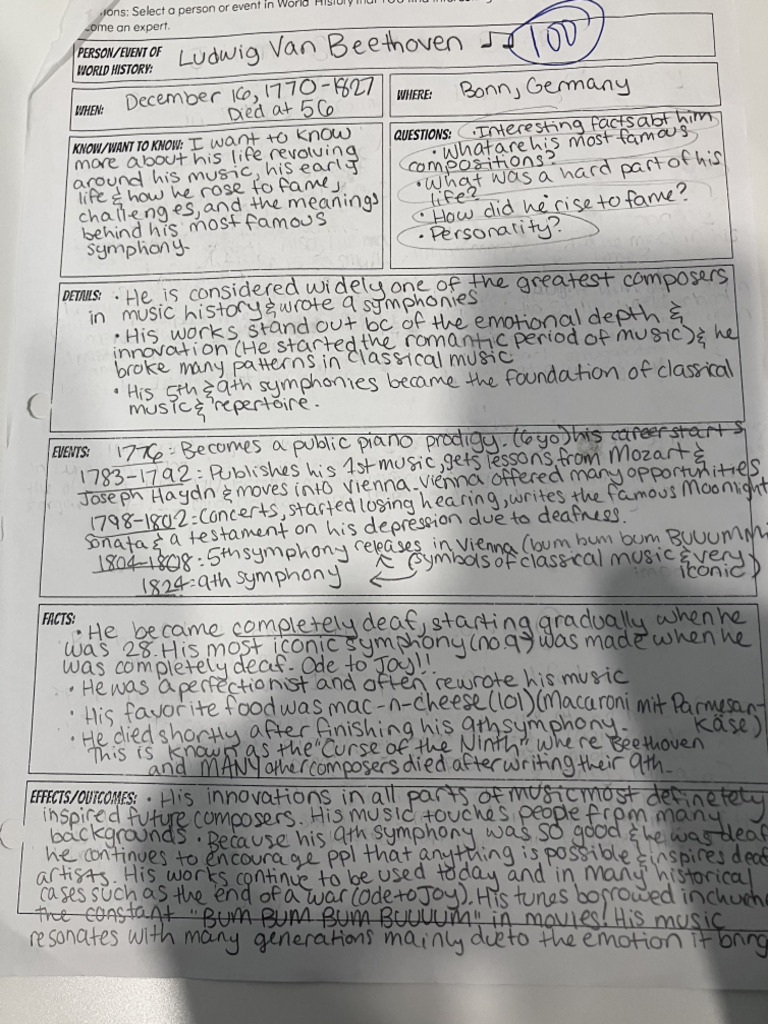 ions: Select a person or event in World History that YOU find interes
ome an expert.
PERSON/EVENT OF
WORLD HISTORY: Ludwig Van Beethoven ♪♫ 100
WHEN: December 16, 1770-1827
Died at 56
WHERE: Bonn, Germany
KNOW/WANT TO KNOW: I want to know
more about his life revolving
around his music, his early
life & how he rose to fame,
challenges, and the meanings
behind his most famous
symphony.
QUESTIONS: • Interesting facts abt him
• What are his most famous
compositions?
• What was a hard part of his
life?
• How did he rise to fame?
• Personality?
DETAILS: • He is considered widely one of the greatest composers
in music history & wrote 9 symphonies
• His works stand out bc of the emotional depth &
innovation (He started the romantic period of music) & he
broke many patterns in classical music
• His 5th & 9th symphonies became the foundation of classical
music & repertoire.
EVENTS: 1776: Becomes a public piano prodigy. (6 yo) his career starts
1783-1792: Publishes his 1st music, gets lessons from Mozart &
Joseph Haydn & moves into Vienna. Vienna offered many opportunities
1798-1802: Concerts, started losing hearing, writes the famous Moonlight
Sonata & a testament on his depression due to deafness.
1804-1808: 5th symphony releases in Vienna (bum bum bum BUUUMM
1824: 9th symphony symbols of classical music & very
iconic)
FACTS:
• He became completely deaf, starting gradually when he
was 28. His most iconic symphony (no.9) was made when he
was completely deaf. Ode to Joy!!
• He was a perfectionist and often rewrote his music
• His favorite food was mac-n-cheese (lol) (Macaroni mit Parmesan-
Käse)
• He died shortly after finishing his 9th symphony.
This is known as the "Curse of the Ninth" where Beethoven
and MANY other composers died after writing their 9th.
EFFECTS/OUTCOMES: • His innovations in all parts of music most definetely
inspired future composers. His music touches people from many
backgrounds • Because his 9th symphony was so good & he was deaf
he continues to encourage ppl that anything is possible & inspires deaf
artists. His works continue to be used today and in many historical
cases such as the end of a war (Ode to Joy). His tunes borrowed in
the constant "BUM BUM BUM BUUUUM" in movies! His music
resonates with many generations mainly due to the emotion it bring